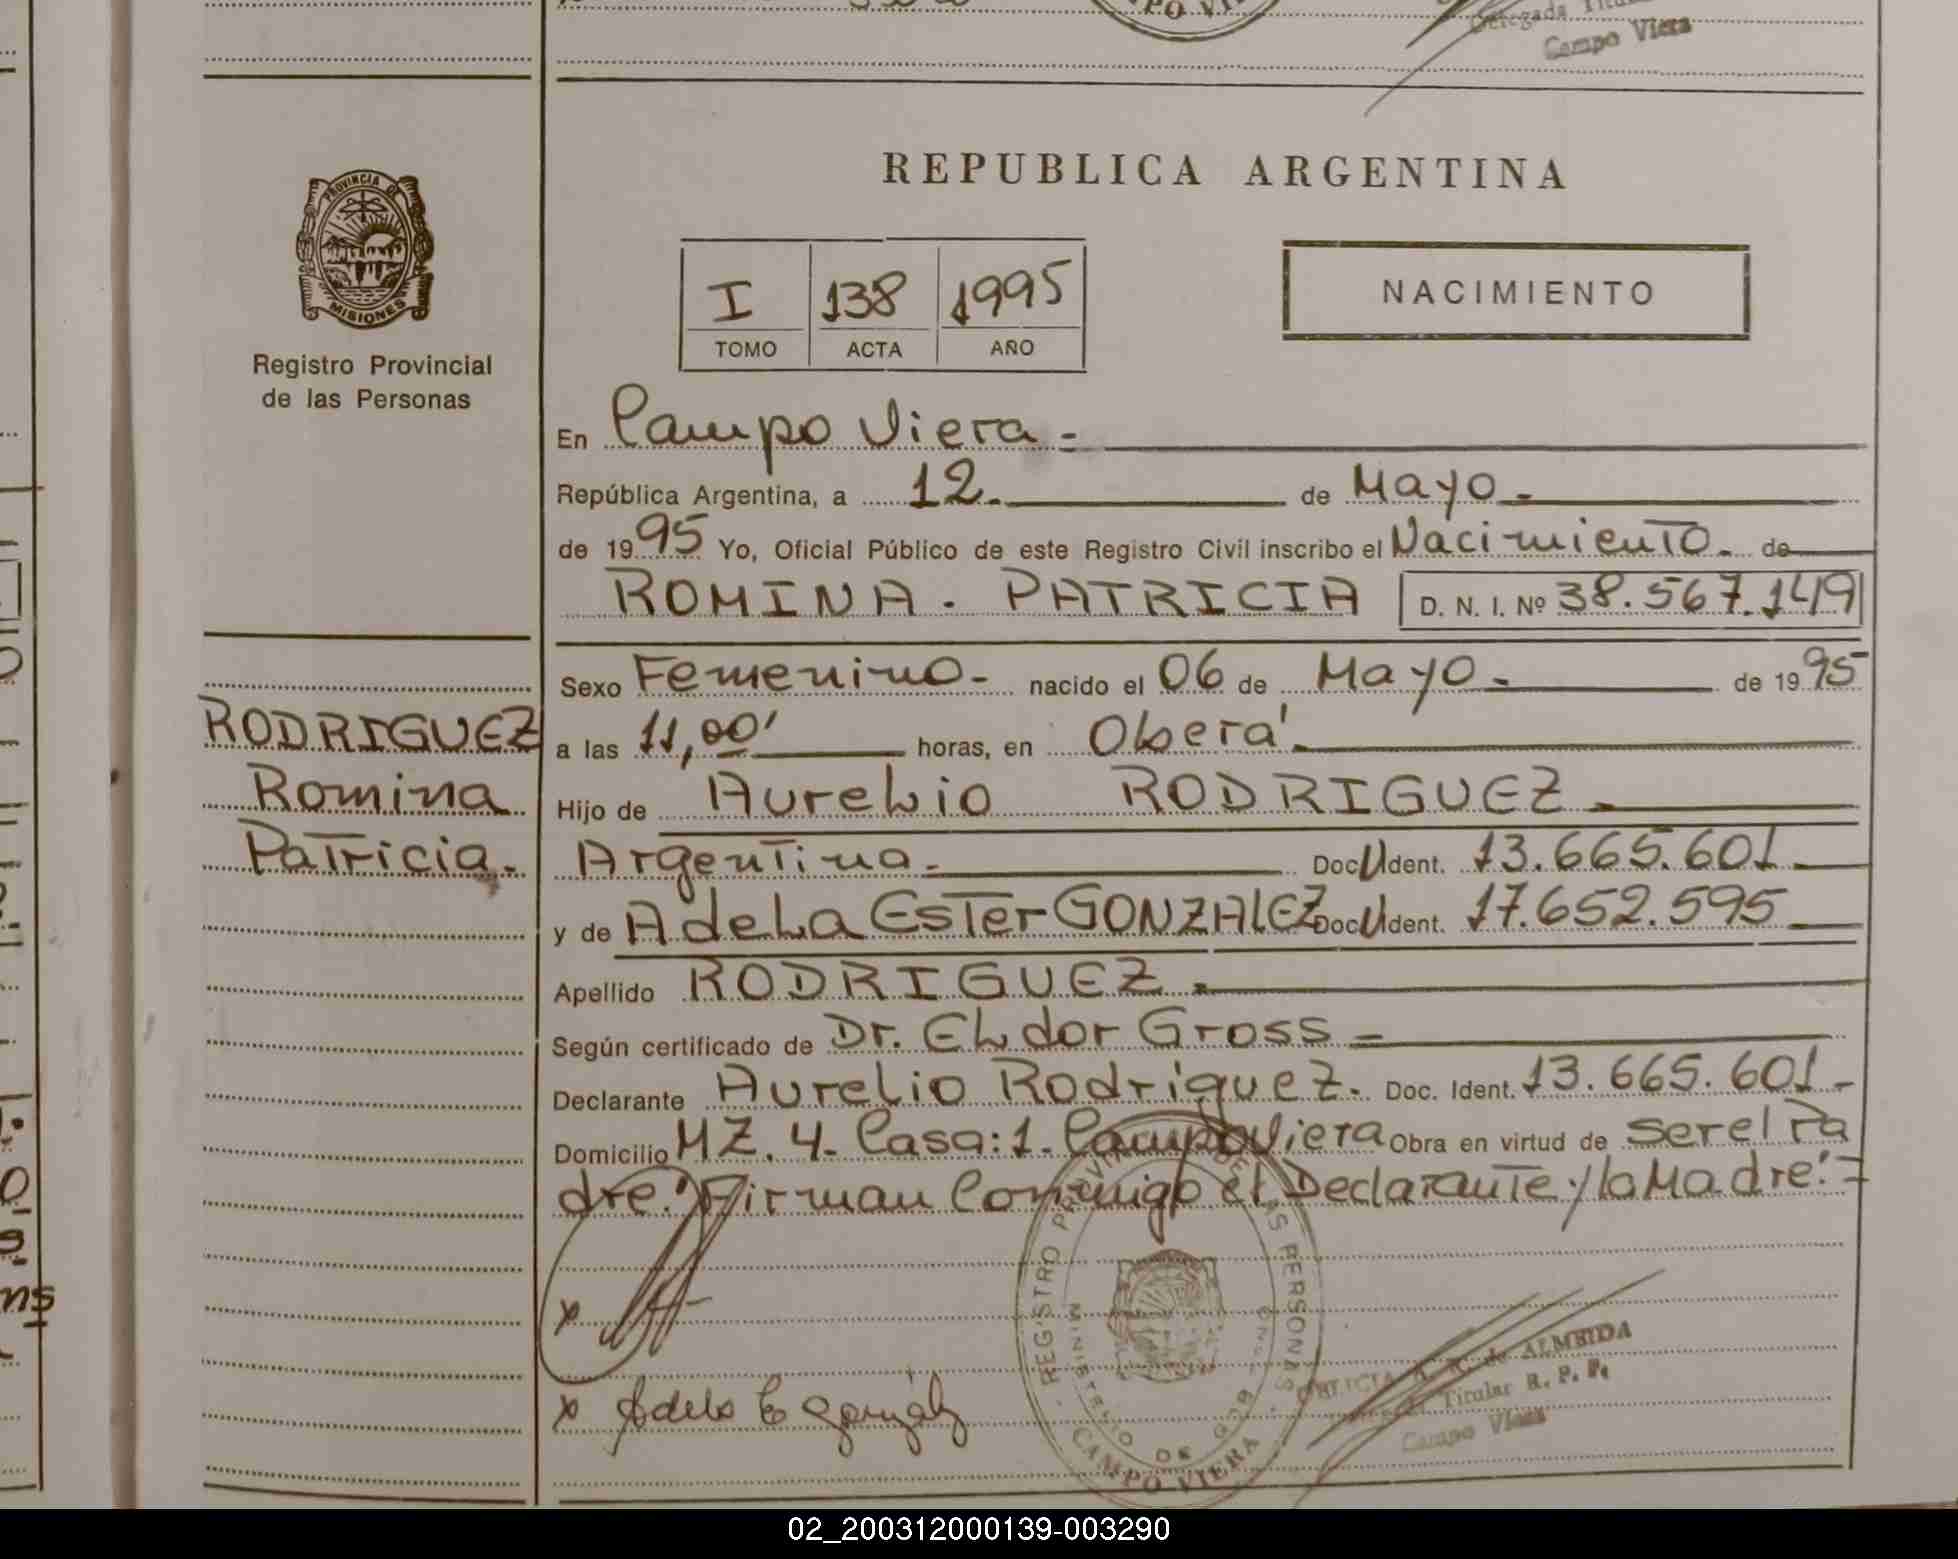 Delegada Titu
Campo Viera
PROVINCIA DE
MISIONES
Registro Provincial
de las Personas
REPUBLICA ARGENTINA
I 138 1995
TOMO ACTA AÑO
NACIMIENTO
En Campo Viera -
República Argentina, a 12. de Mayo -
de 1995 Yo, Oficial Público de este Registro Civil inscribo el Nacimiento. de
ROMINA. PATRICIA D. N. I. Nº 38.567.149
Sexo Femenino - nacido el 06 de Mayo - de 1995
a las 11,00' horas, en Oberá.
Hijo de Aurelio RODRIGUEZ -
Argentina. Doc U Ident. 13.665.601 -
y de Adela Ester GONZALEZ Doc U Ident. 17.652.595
Apellido RODRIGUEZ.
Según certificado de Dr. Eldor Gross -
Declarante Aurelio Rodriguez. Doc. Ident. 13.665.601 -
Domicilio MZ. 4. Casa: 1. Campo Viera Obra en virtud de ser el Pa
dre. Firman Conmigo el Declarante y la Madre. =
RODRIGUEZ
Romina
Patricia.
x
x Adela E Gonzalez
REGISTRO PROVINCIAL DE LAS PERSONAS
MINISTERIO DE GOB
CAMPO VIERA
de ALMEIDA
Titular R. P. P.
Campo Viera
02_200312000139-003290